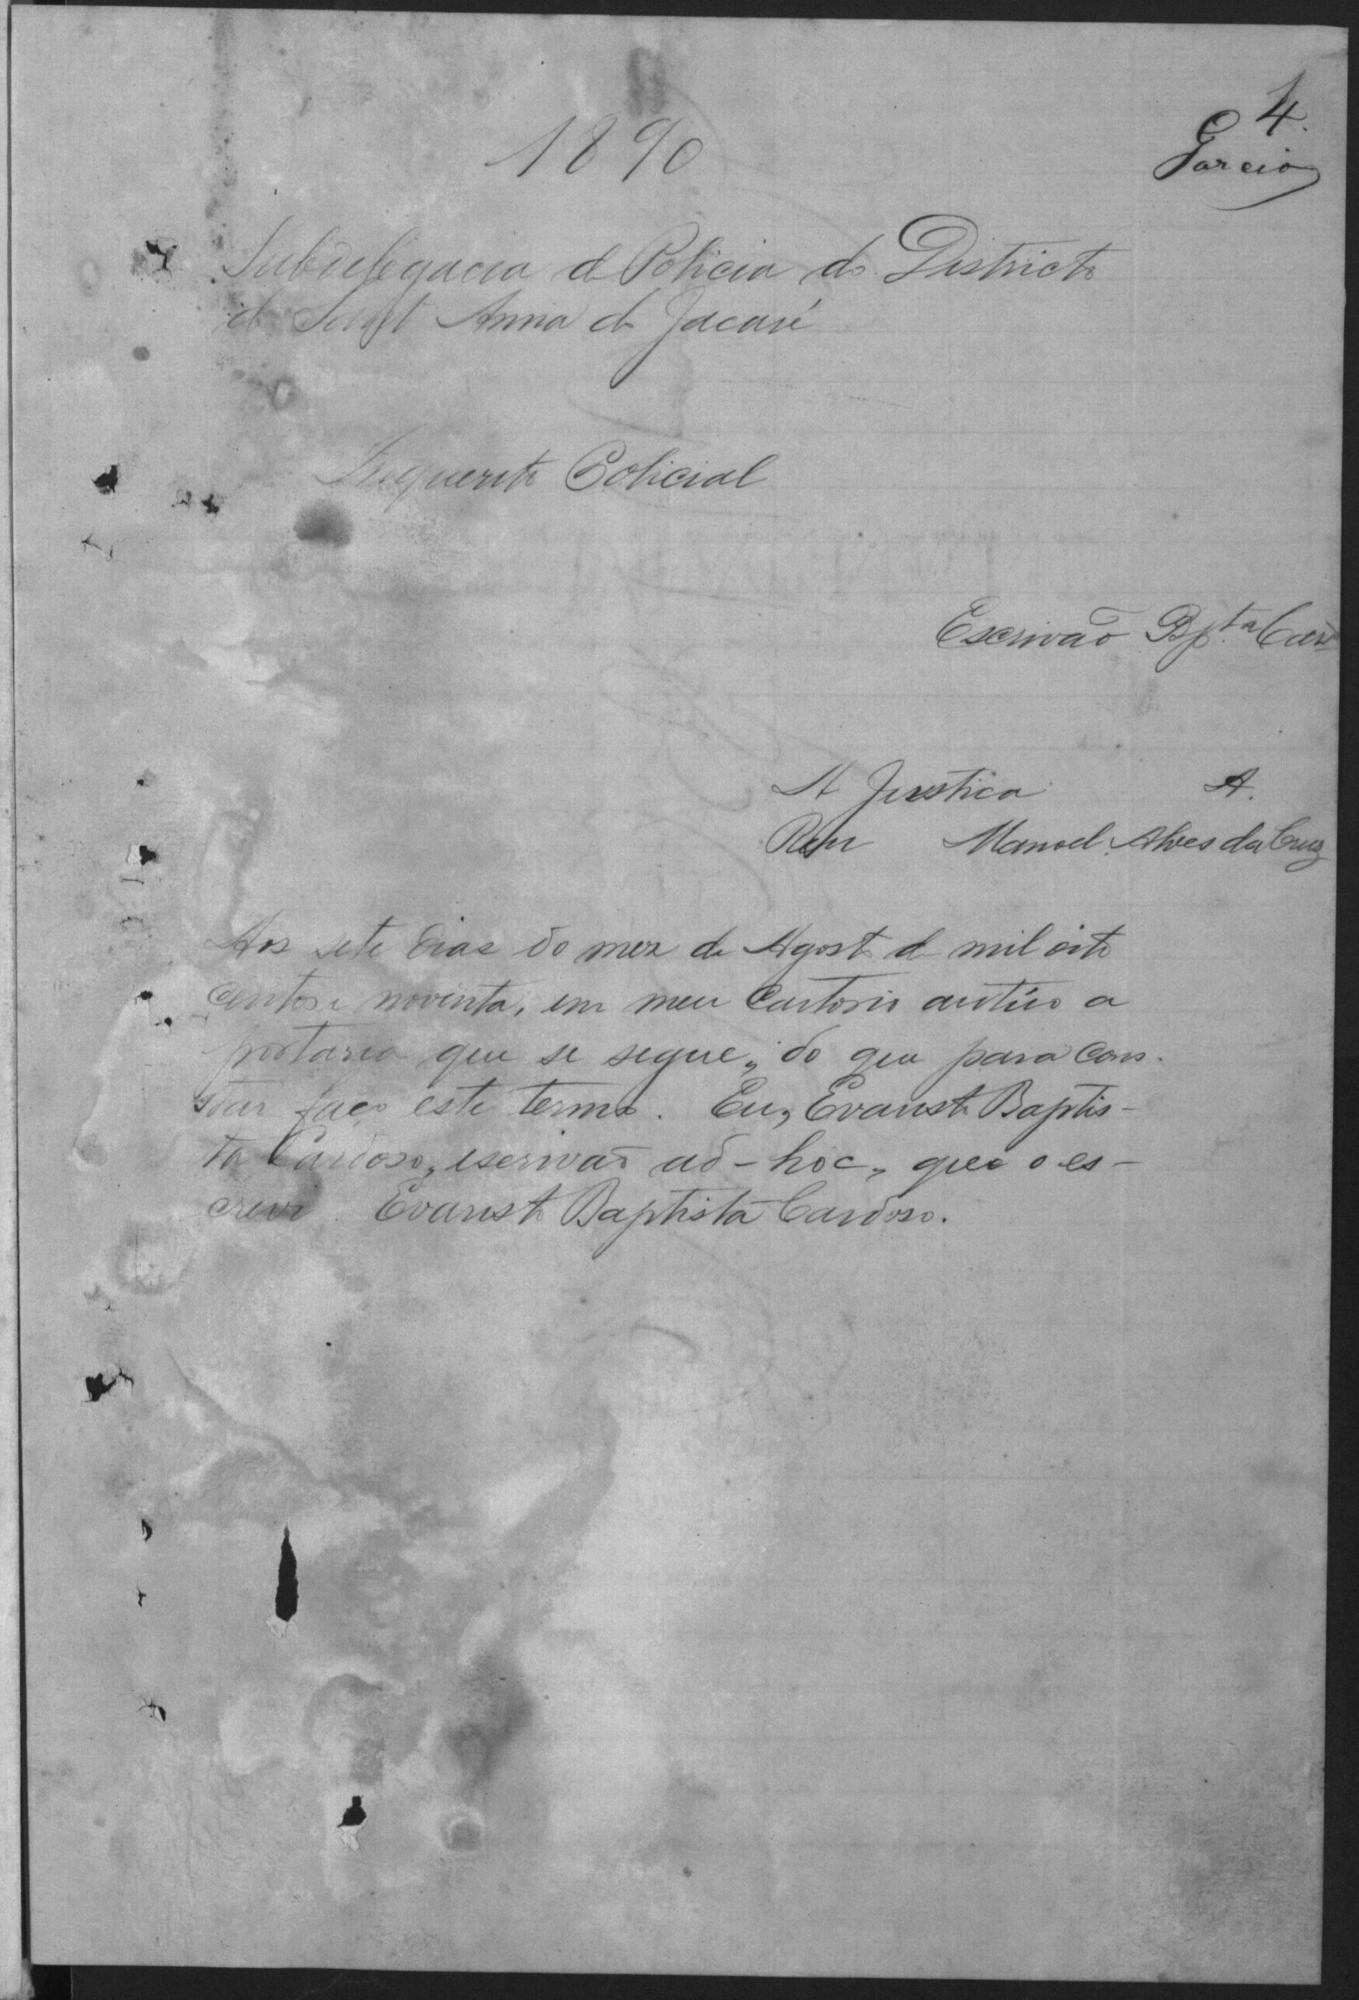 4.
Garcia
1890
Subdelegacia de Policia do Districto
de Sant Anna do Jacaré
Inquerito Policial
Escrivão Bpta Card
A Justica A.
Reu Manoel Alves da Cruz
Aos sete dias do mez de Agosto de mil oito
centos e noventa, em meu Cartorio autúo a
portaria que se segue; do que para cons-
tar faço este termo. Eu, Evaristo Baptis-
ta Cardoso, escrivão ad-hoc, que o es-
crevi. Evaristo Baptista Cardoso.